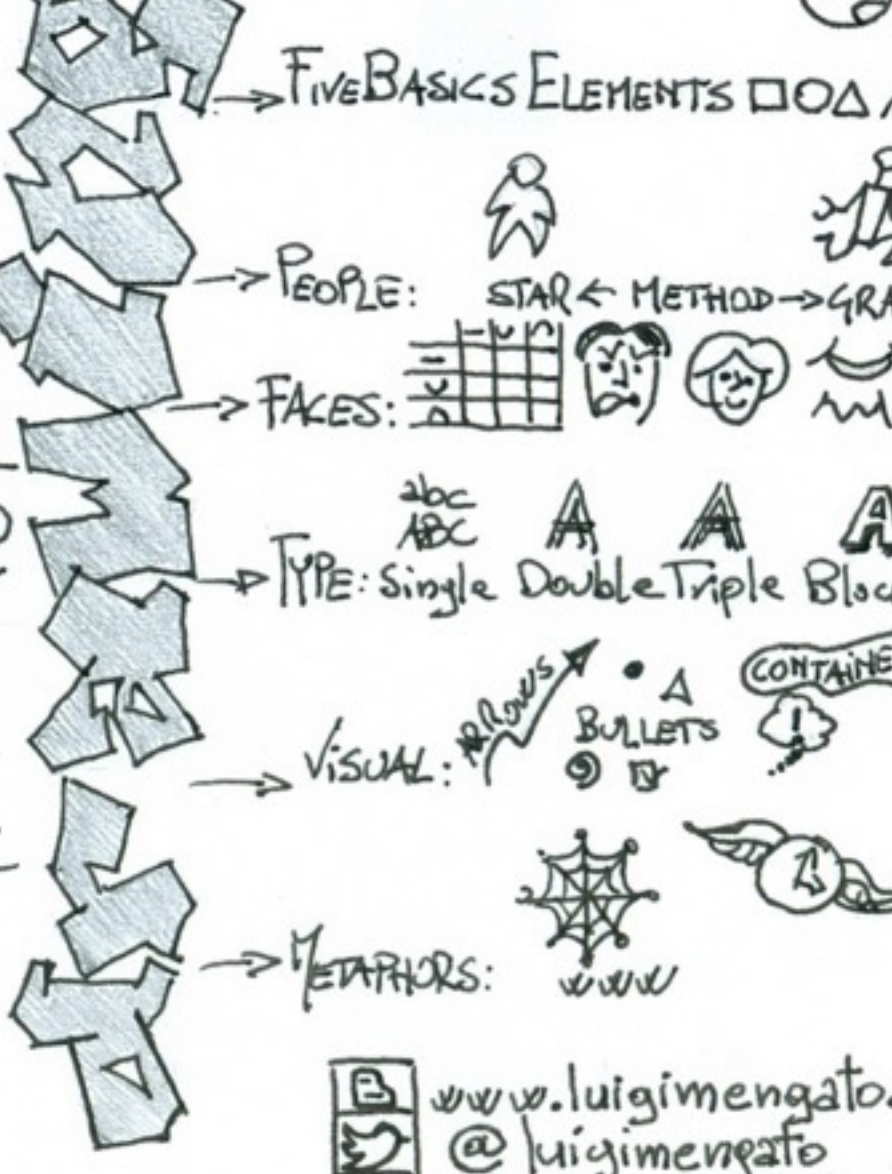 FIVE BASICS ELEMENTS
PEOPLE:
STAR ← METHOD → GRA
FACES:
abc
ABC
A A A
TYPE: Single Double Triple Bloc
ARROWS
CONTAINE
!
BULLETS
VISUAL:
METAPHORS:
www
www.luigimengato.
@luigimengato